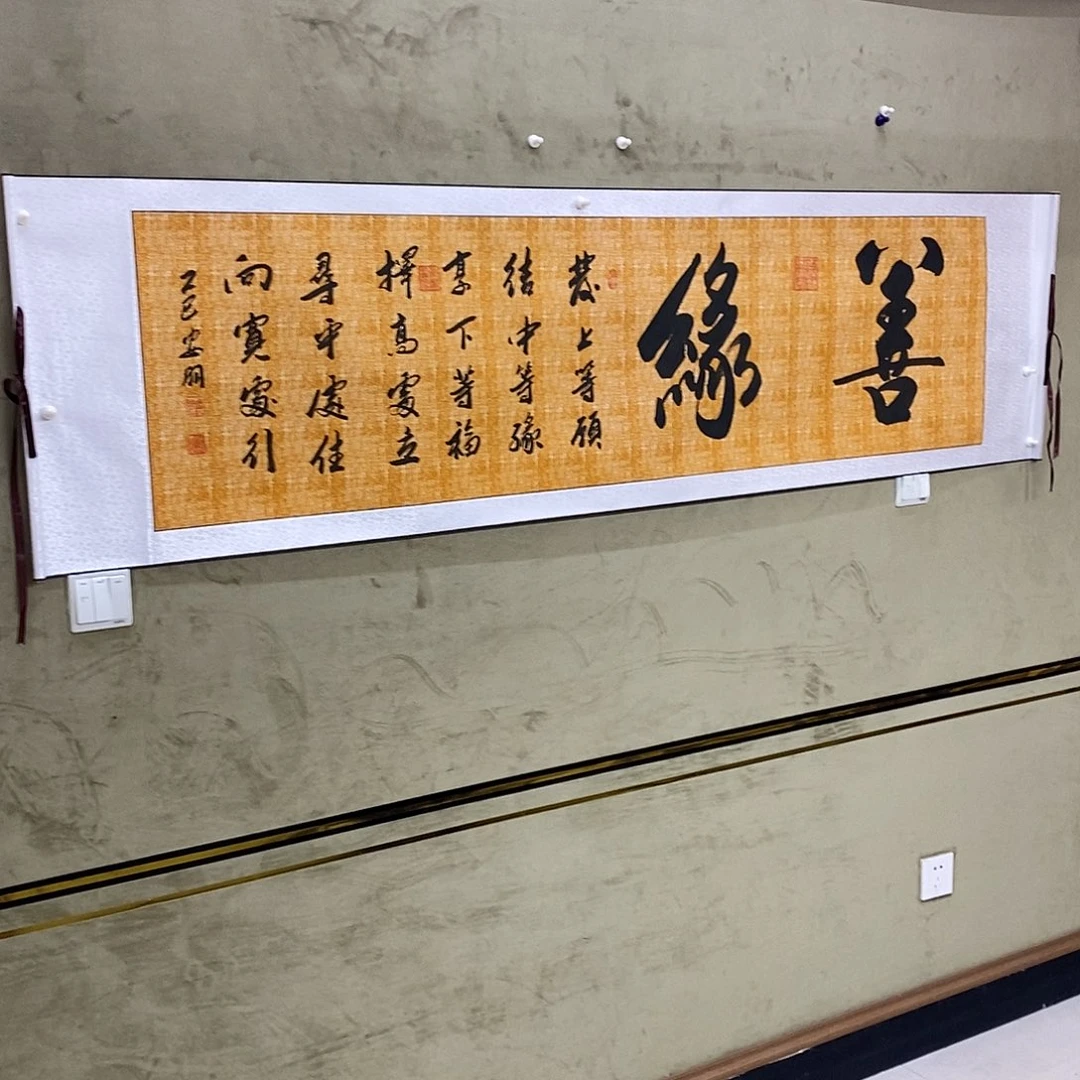 善緣
發上等願
結中等緣
享下等福
擇高處立
尋平處住
向寬處行
乙巳